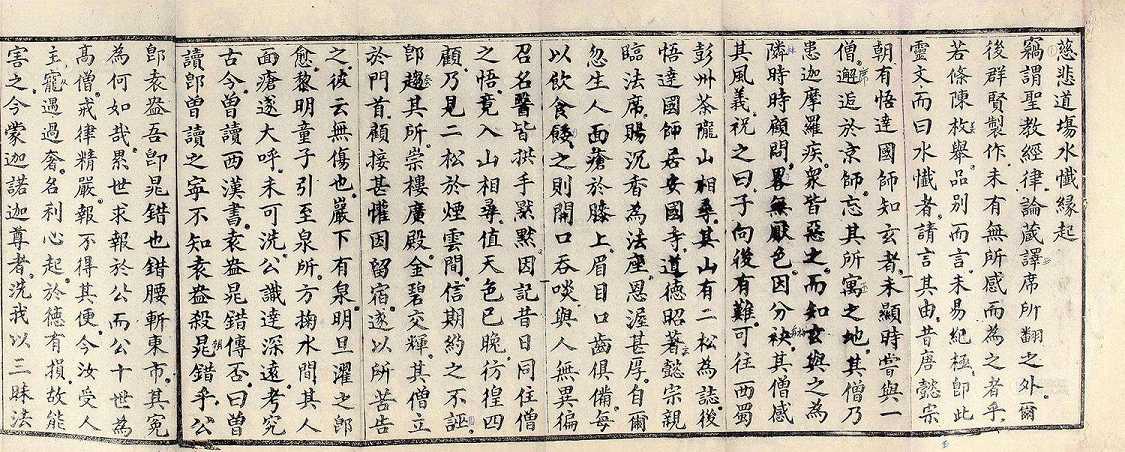 慈悲道場水懺縁起
竊謂聖教經律論蔵譯席所翻之外。爾
後群賢製作。未有無所感而為之者乎。
若條陳枚舉。品別而言。未易紀極。即此
靈文。而曰水懺者。請言其由。昔唐懿宗
朝有悟達國師知玄者。未顯時嘗與一
僧邂逅於京師。忘其所寓之地。其僧乃
患迦摩羅疾。衆皆惡之。而知玄與之為
隣。時時顧問。畧無厭色。因分袂。其僧感
其風義。祝之曰。子向後有難。可往西蜀
彭州茶隴山相尋。其山有二松為誌。後
悟達國師居安國寺。道徳昭著。懿宗親
臨法席。賜沉香為法座。恩渥甚厚。自爾
忽生人面瘡於膝上。眉目口齒俱備。每
以飲食餧之。則開口吞啖。與人無異。徧
召名醫。皆拱手默默。因記昔日同住僧
之語。竟入山相尋。值天色已晚。彷徨四
顧。乃見二松於煙雲間。信期約之不誣。
即趨其所。崇樓廣殿。金碧交輝。其僧立
於門首。顧接甚懽。因留宿。遂以所苦告
之。彼云無傷也。巖下有泉。明旦濯之即
愈。黎明童子引至泉所。方掬水間。其人
面瘡遂大呼。未可洗。公識達深遠。考究
古今。曽讀西漢書。袁盎晁錯傳否。曰曽
讀。即曽讀之。寜不知袁盎殺晁錯乎。公
即袁盎。吾即晁錯也。錯腰斬東市。其寃
為何如哉。累世求報於公。而公十世為
髙僧。戒律精嚴。報不得其便。今汝受人
主寵遇過奢。名利心起。於徳有損。故能
害之。今蒙迦諾迦尊者。洗我以三昧法